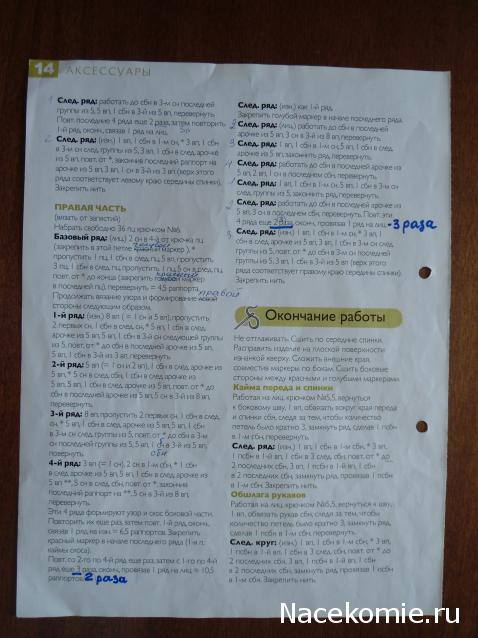 14 АКСЕССУАРЫ
След. ряд: работать до сбн в 3-м сн последней
группы из 5, 5 вп, 1 сбн в 3-й из 5 вп, перевернуть.
Повт. последние 4 ряда еще 2 раза, затем повторить
1-й ряд, оконч., связав 1 ряд на лиц.
След. ряд: (изн.) 1 вп, 1 сбн в 1-м сн, * 3 вп, 1 сбн
в 3-м сн след. группы из 5, 3 вп, 1 сбн в след. арочке
из 5 вп, повт. от *, закончив последний раппорт на
арочке из 5 вп, 3 вп, 1 сн в 3-й из 3 вп (верх этого
ряда соответствует левому краю середины спинки).
Закрепить нить.
ПРАВАЯ ЧАСТЬ
(вязать от запястий)
Набрать свободно 36 пц крючком №6.
Базовый ряд: (лиц.) 2 сн в 4-й от крючка пц
(закрепить в этой петле маркер), *
пропустить 1 пц, 1 сбн в след. пц, 5 вп, пропустить
3 пц, 1 сбн в след. пц, пропустить 1 пц, 5 сн в след. пц,
повт. от * до конца (закрепить маркер
в последней пц), перевернуть = 4,5 раппорта.
Продолжать вязание узора и формирование левой
правой
стороны следующим образом.
1-й ряд: (изн.) 8 вп ( = 1 сн и 5 вп), пропустить
2 первых сн, 1 сбн в след. сн, * 5 вп, 1 сбн в след.
арочке из 5 вп, 5 вп, 1 сбн в 3-й сн следующей группы
из 5, повт. от * до последней арочки из 5 вп, 5 вп,
1 сбн в арочку из 5 вп, перевернуть.
2-й ряд: 5 вп (= 1 сн и 2 вп), 1 сбн в след. арочке
из 5 вп, * 5 сн в след. сбн, 1 сбн в след. арочке из
5 вп, 5 вп, 1 сбн в след. арочке из 5 вп, повт. от * до
сбн в последней арочке из 5 вп, 5 сн в 3-й из 8 вп,
перевернуть.
3-й ряд: 8 вп, пропустить 2 первых сн, 1 сбн в след.
сн, * 5 вп, 1 сбн в след. арочке из 5 вп, 5 вп, 1 сбн
в 3-м сн след. группы из 5, повт. от * до сбн в 3-м сн
последней группы из 5, 5 вп, 1 сн в 3-й из 5 вп,
повернуть.
сбн
4-й ряд: 3 вп (= 1 сн), 2 сн в 1-м сбн, * 1 сбн
в след. арочке из 5 вп, 5 вп, 1 сбн в след. арочке из
5 вп **, 5 сн в след. сбн, повт. от *, закончив
последний раппорт на **, 5 сн в 3-й из 8 вп,
перевернуть.
Эти 4 ряда формируют узор и скос боковой части.
Повторить их еще раз, затем повт. 1-й ряд, оконч.,
связав 1 ряд на изн. = 6,5 раппортов. Закрепить
красный маркер в начале последнего ряда (1-я п.
каймы скоса).
Повт. со 2-го по 4-й ряд еще раз, затем с 1-го по 4-й
ряд еще 3 раза, оконч., провязав 1 ряд на лиц. = 10,5
раппортов. – 2 раза
След. ряд: (изн.) как 1-й ряд.
Закрепить голубой маркер в начале последнего ряда.
След. ряд: (лиц.) работать до сбн в последней
арочке из 5 вп, 3 сн в 3-й из 8 вп, перевернуть.
След. ряд: 1 вп, 1 сбн в 1-м сн, 5 вп, 1 сбн в след.
арочке из 5 вп, закончить ряд, перевернуть.
След. ряд: работать до сбн в последней арочке
из 5 вп, 5 вп, 1 сбн в последнем сбн, перевернуть.
След. ряд: 1 вп, 1 сбн в 1-м сбн, 5 вп, 1 сбн в 3-м сн
след. группы из 5, закончить ряд, перевернуть.
След. ряд: работать до сбн в последней арочке из
5 вп, 3 сн в последнем сбн, перевернуть. Повт. эти
4 ряда еще 2 раза, оконч., провязав 1 ряд на лиц. – 3 раза
След. ряд: (изн.) 1 вп, 1 сбн в 1-м сн, * 3 вп, 1
сбн в след. арочке из 5 вп, 3 вп, 1 сбн в 3-м сн след.
группы из 5, повт. от * до сбн в 3-м сн последней
группы из 5, 3 вп, 1 сбн в 3-й из 5 вп (верх этого
ряда соответствует правому краю середины спинки).
Закрепить нить.
Окончание работы
Не отглаживать. Сшить по середине спинки.
Разрезать изделие на плоской поверхности
изнанкой кверху. Сложить внешние края,
совместив маркеры по бокам. Сшить боковые
стороны между красными и голубыми маркерами.
Кайма переда и спинки
Работая на лиц. крючком №5,5, вернуться
к боковому шву, 1 вп, обвязать вокруг края переда
и спинки сбн, следя за тем, чтобы количество
петель было кратно 3, замкнуть ряд, сделав 1 пбн
в 1-м сбн, перевернуть.
След. ряд: (изн.) 1 вп, 1 сбн в 1-м сбн, * 3 вп,
1 псбн в 1-й вп, 1 сбн в 3 след. сбн, повт. от * до
2 последних сбн, 3 вп, 1 псбн в 3-й вп, 1 сбн в
2 последних сбн, замкнуть ряд, провязав 1 псбн
в 1-м сбн. Закрепить нить.
Обшлага рукавов
Работая на лиц. крючком №5,5, вернуться к шву,
1 вп, обвязать рукав сбн, следя за тем, чтобы
количество петель было кратно 3, замкнуть ряд,
сделав 1 псбн в 1-м сбн, перевернуть.
След. круг: (изн.) 1 вп, 1 сбн в 1-м сбн, * 3 вп,
1 псбн в 1-й вп, 1 сбн в 3 след. сбн, повт. от * до
2 последних сбн, 3 вп, 1 псбн в 1-й вп, 1 сбн
в 2 последних сбн, замкнуть ряд, провязав 1 псбн
в 1-м сбн. Закрепить нить.
Nacekomie.ru